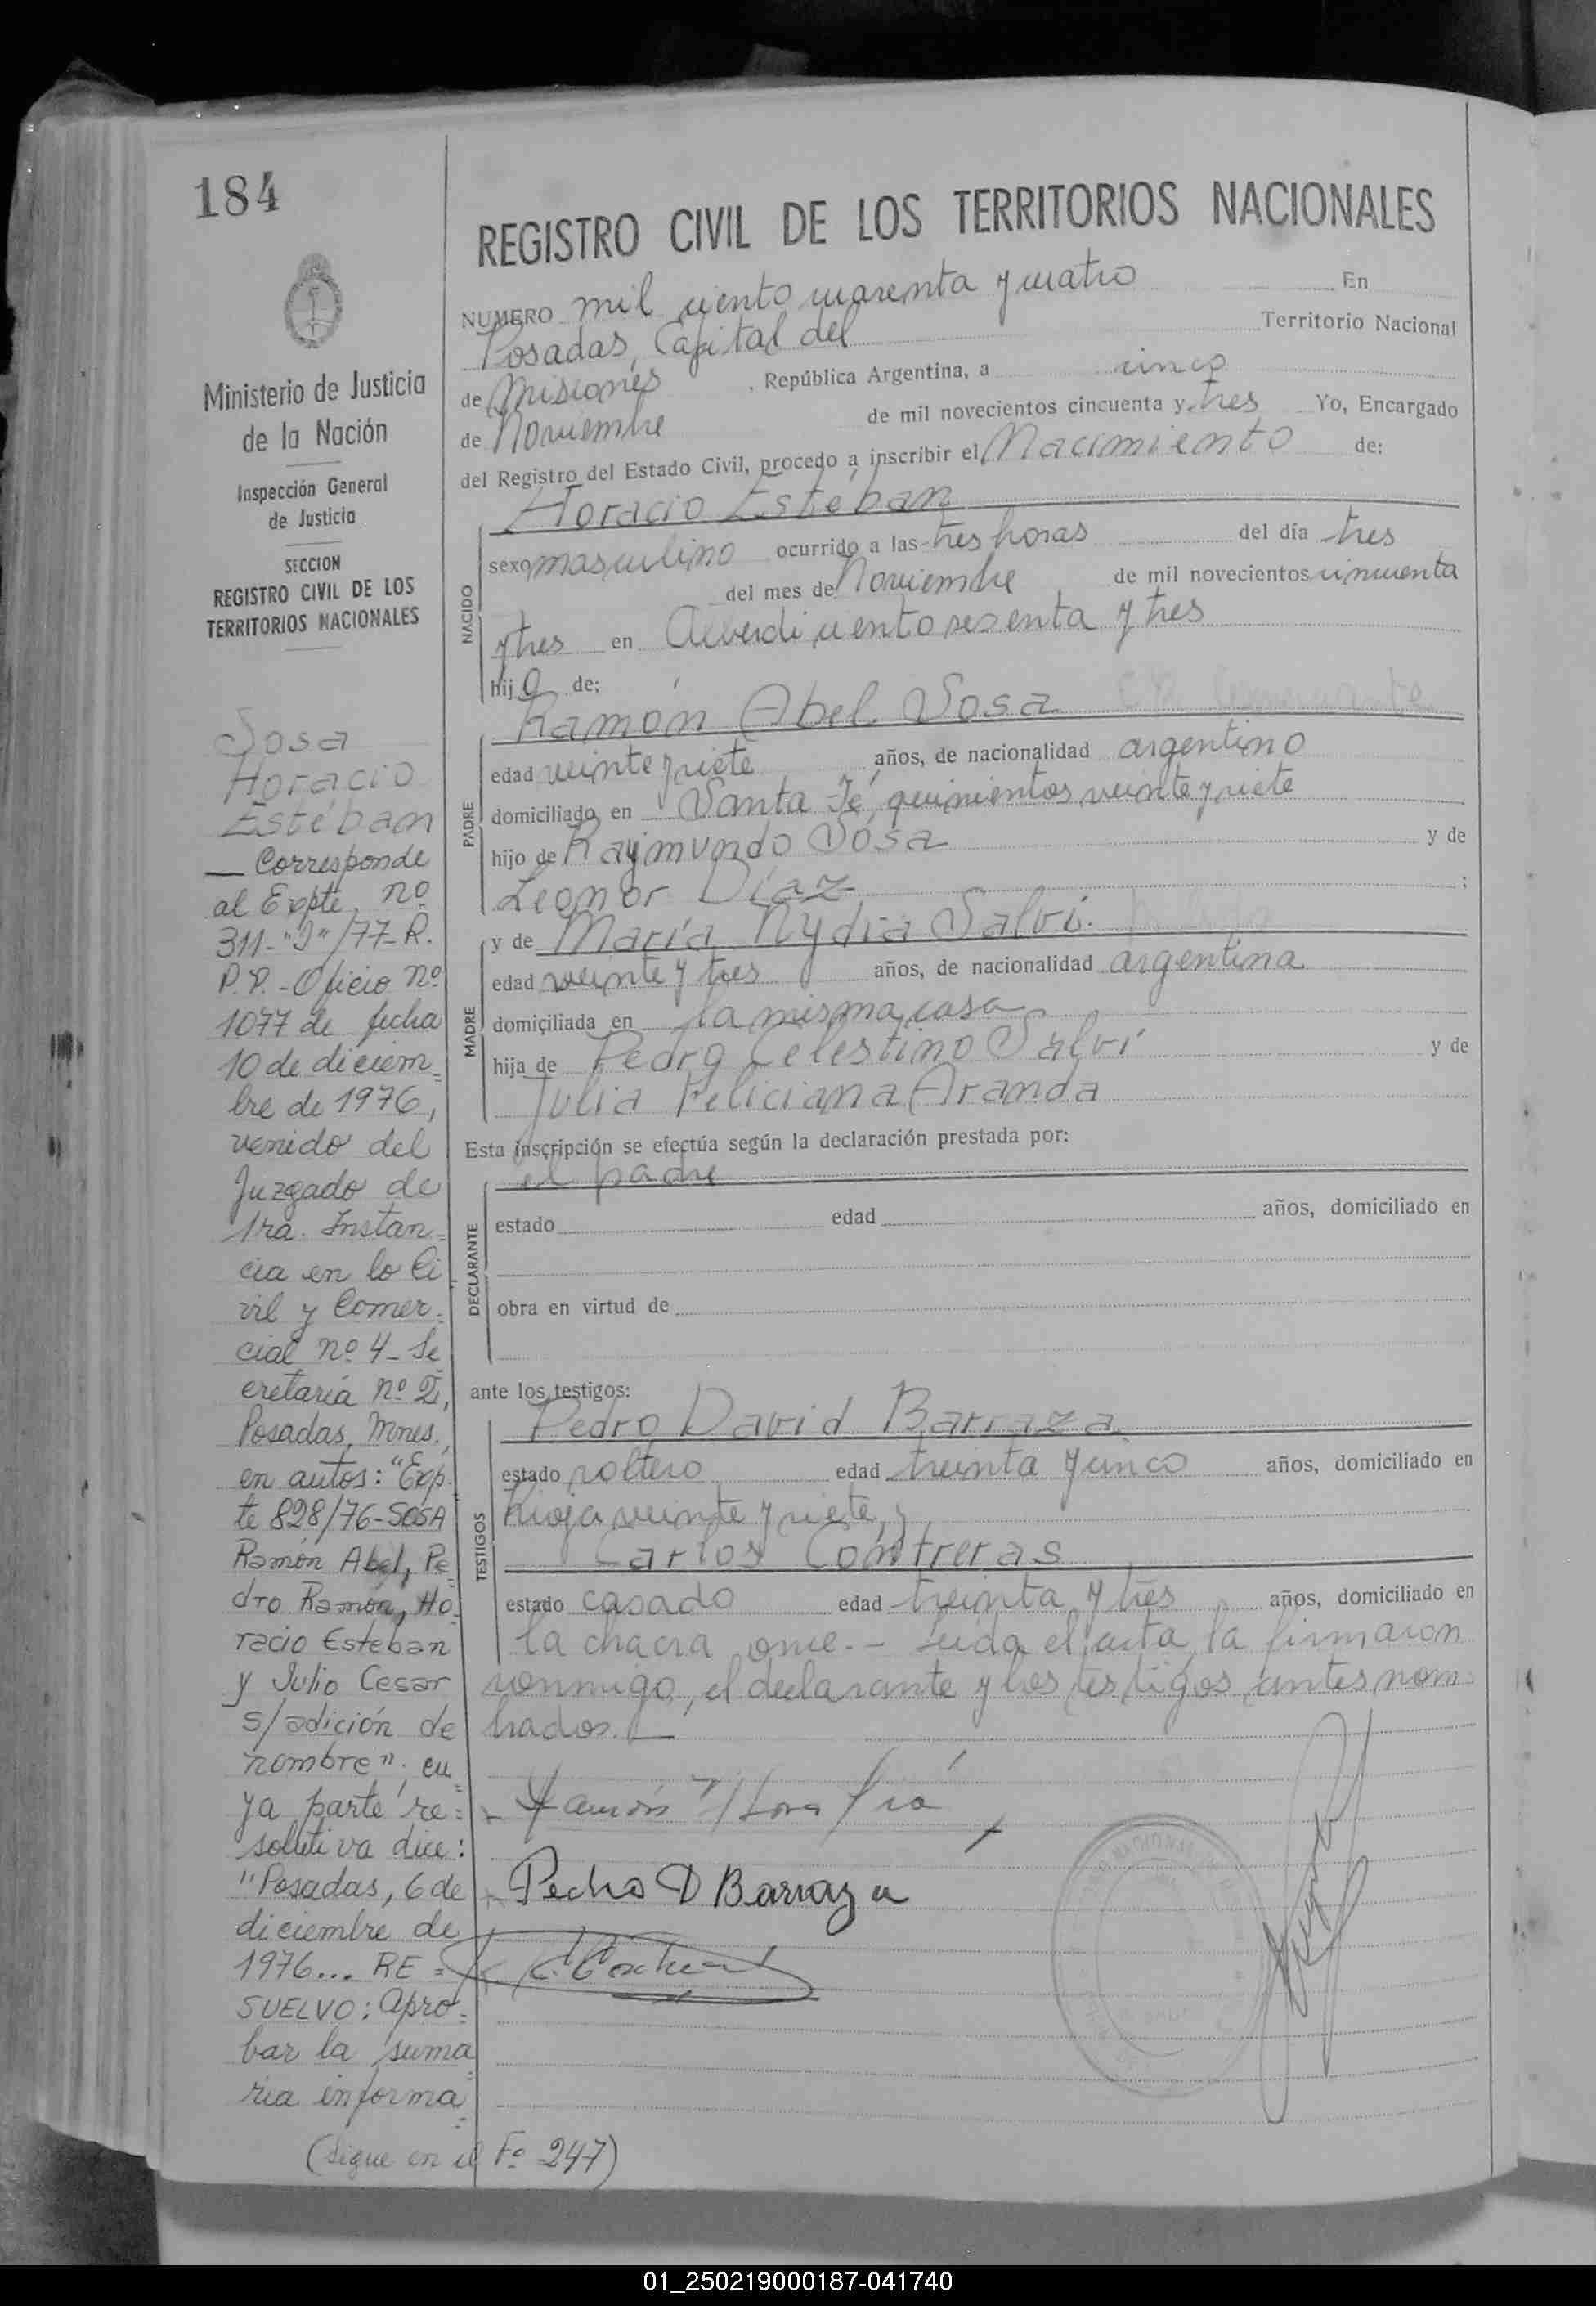 184
Ministerio de Justicia
de la Nación
Inspección General
de Justicia
SECCION
REGISTRO CIVIL DE LOS
TERRITORIOS NACIONALES
Sosa
Horacio
Estéban
— Corresponde
al Expte. nº
311-"J"/77-R.
P.P.-Oficio nº
1077 de fecha
10 de diciem=
bre de 1976,
venido del
Juzgado de
1ra. Instan=
cia en lo Ci
vil y Comer=
cial nº 4-Se
cretaría nº 2,
Posadas, Mnes.,
en autos: "Exp.
te 828/76-SOSA
Ramón Abel, Pe=
dro Ramón, Ho=
racio Esteban
y Julio Cesar
s/adición de
nombre"; cu=
ya parte re=
soluti va dice:
"Posadas, 6 de
diciembre de
1976... RE=
SUELVO: Apro=
bar la suma
ria informa=
(Sigue en el Fº 247)
REGISTRO CIVIL DE LOS TERRITORIOS NACIONALES
NUMERO mil ciento cuarenta y cuatro En
Posadas, Capital del Territorio Nacional
de Misiones, República Argentina, a cinco
de Noviembre de mil novecientos cincuenta y tres Yo, Encargado
del Registro del Estado Civil, procedo a inscribir el Nacimiento de:
NACIDO
Horacio Estéban
sexo masculino ocurrido a las tres horas del día tres
del mes de Noviembre de mil novecientos cincuenta
y tres en Alberdi ciento sesenta y tres
hijo de:
PADRE
Ramón Abel Sosa
edad veinte y siete años, de nacionalidad argentino
domiciliado en Santa Fé, quinientos veinte y siete
hijo de Raymundo Sosa y de
Leonor Díaz ;
MADRE
y de María Nydia Salvi.
edad veinte y tres años, de nacionalidad argentina
domiciliada en la misma casa
hija de Pedro Celestino Salvi y de
Julia Feliciana Aranda
Esta inscripción se efectúa según la declaración prestada por:
el padre
DECLARANTE
estado edad años, domiciliado en
obra en virtud de
ante los testigos:
TESTIGOS
Pedro David Barraza
estado soltero edad treinta y cinco años, domiciliado en
Rioja veinte y siete, y
Carlos Contreras
estado casado edad treinta y tres años, domiciliado en
la chacra once.- Leida el acta, la firmaron
conmigo, el declarante y los testigos antes nom=
brados.
Pedro D Barraza
01_250219000187-041740